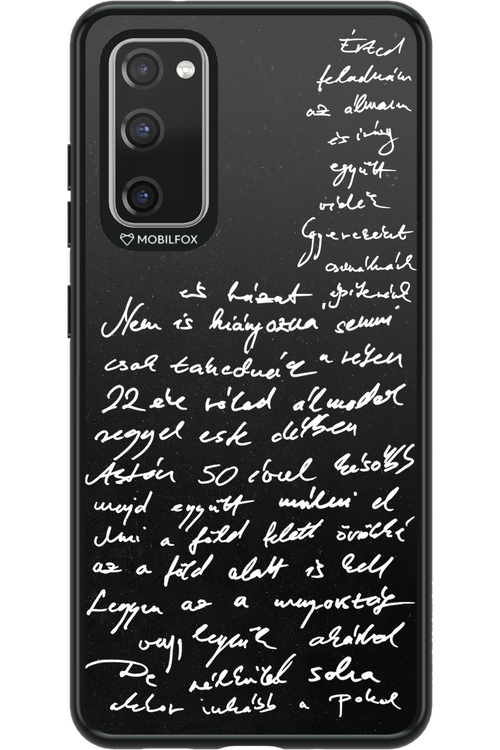 MOBILFOX
Érted
feladnám
az álmam
és irány
együtt
vidék
Gyerekeket
csinálnánk
és házat építenénk
Nem is hiányozna semmi
csak takednék a résen
22 éve rólad álmodok
reggel este délben
Aztán 50 évvel később
majd együtt múlni el
Ami a föld felett örökké
az a föld alatt is kell
Legyen az a mennyország
vagy legyünk akárhol
De nélküled soha
akkor inkább a pokol